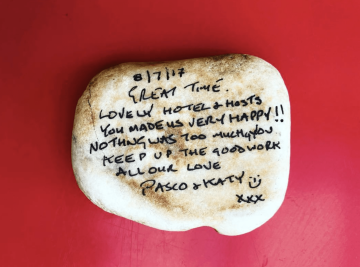 8/7/17
GREAT TIME.
LOVELY HOTEL & HOSTS
YOU MADE US VERY HAPPY!!
NOTHING WAS TOO MUCH, YOU
KEEP UP THE GOOD WORK
ALL OUR LOVE
PASCO & KATY
xxx